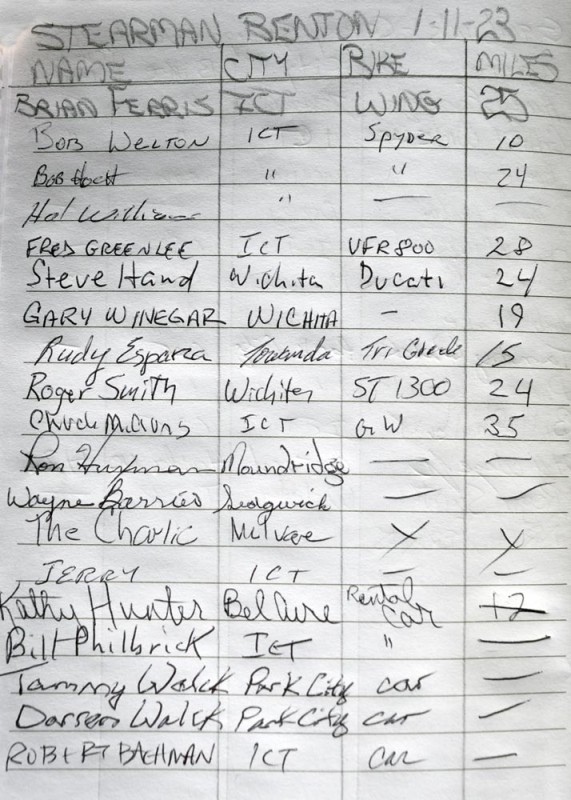 STEARMAN BENTON 1-11-23
NAME CITY BIKE MILES
BRIAN FERRIS ICT WING 25
BOB WELTON ICT SPYDER 10
BOB " " 24
Hal Williams " — —
FRED GREENLEE ICT VFR800 28
Steve Hand Wichita Ducati 24
GARY WINEGAR WICHITA — 19
Rudy Esparza Towanda Tri Glide 15
Roger Smith Wichita ST 1300 24
Chuck ICT GW 35
Ron Moundridge — —
Wayne Sedgwick — —
The Charlie X X
JERRY ICT — —
Kathy Hunter Bel Aire Rental car 12
Bill Philbrick ICT " —
Tammy Walck Park City car —
Darren Walck Park City car —
ROBERT BACHMAN ICT car —